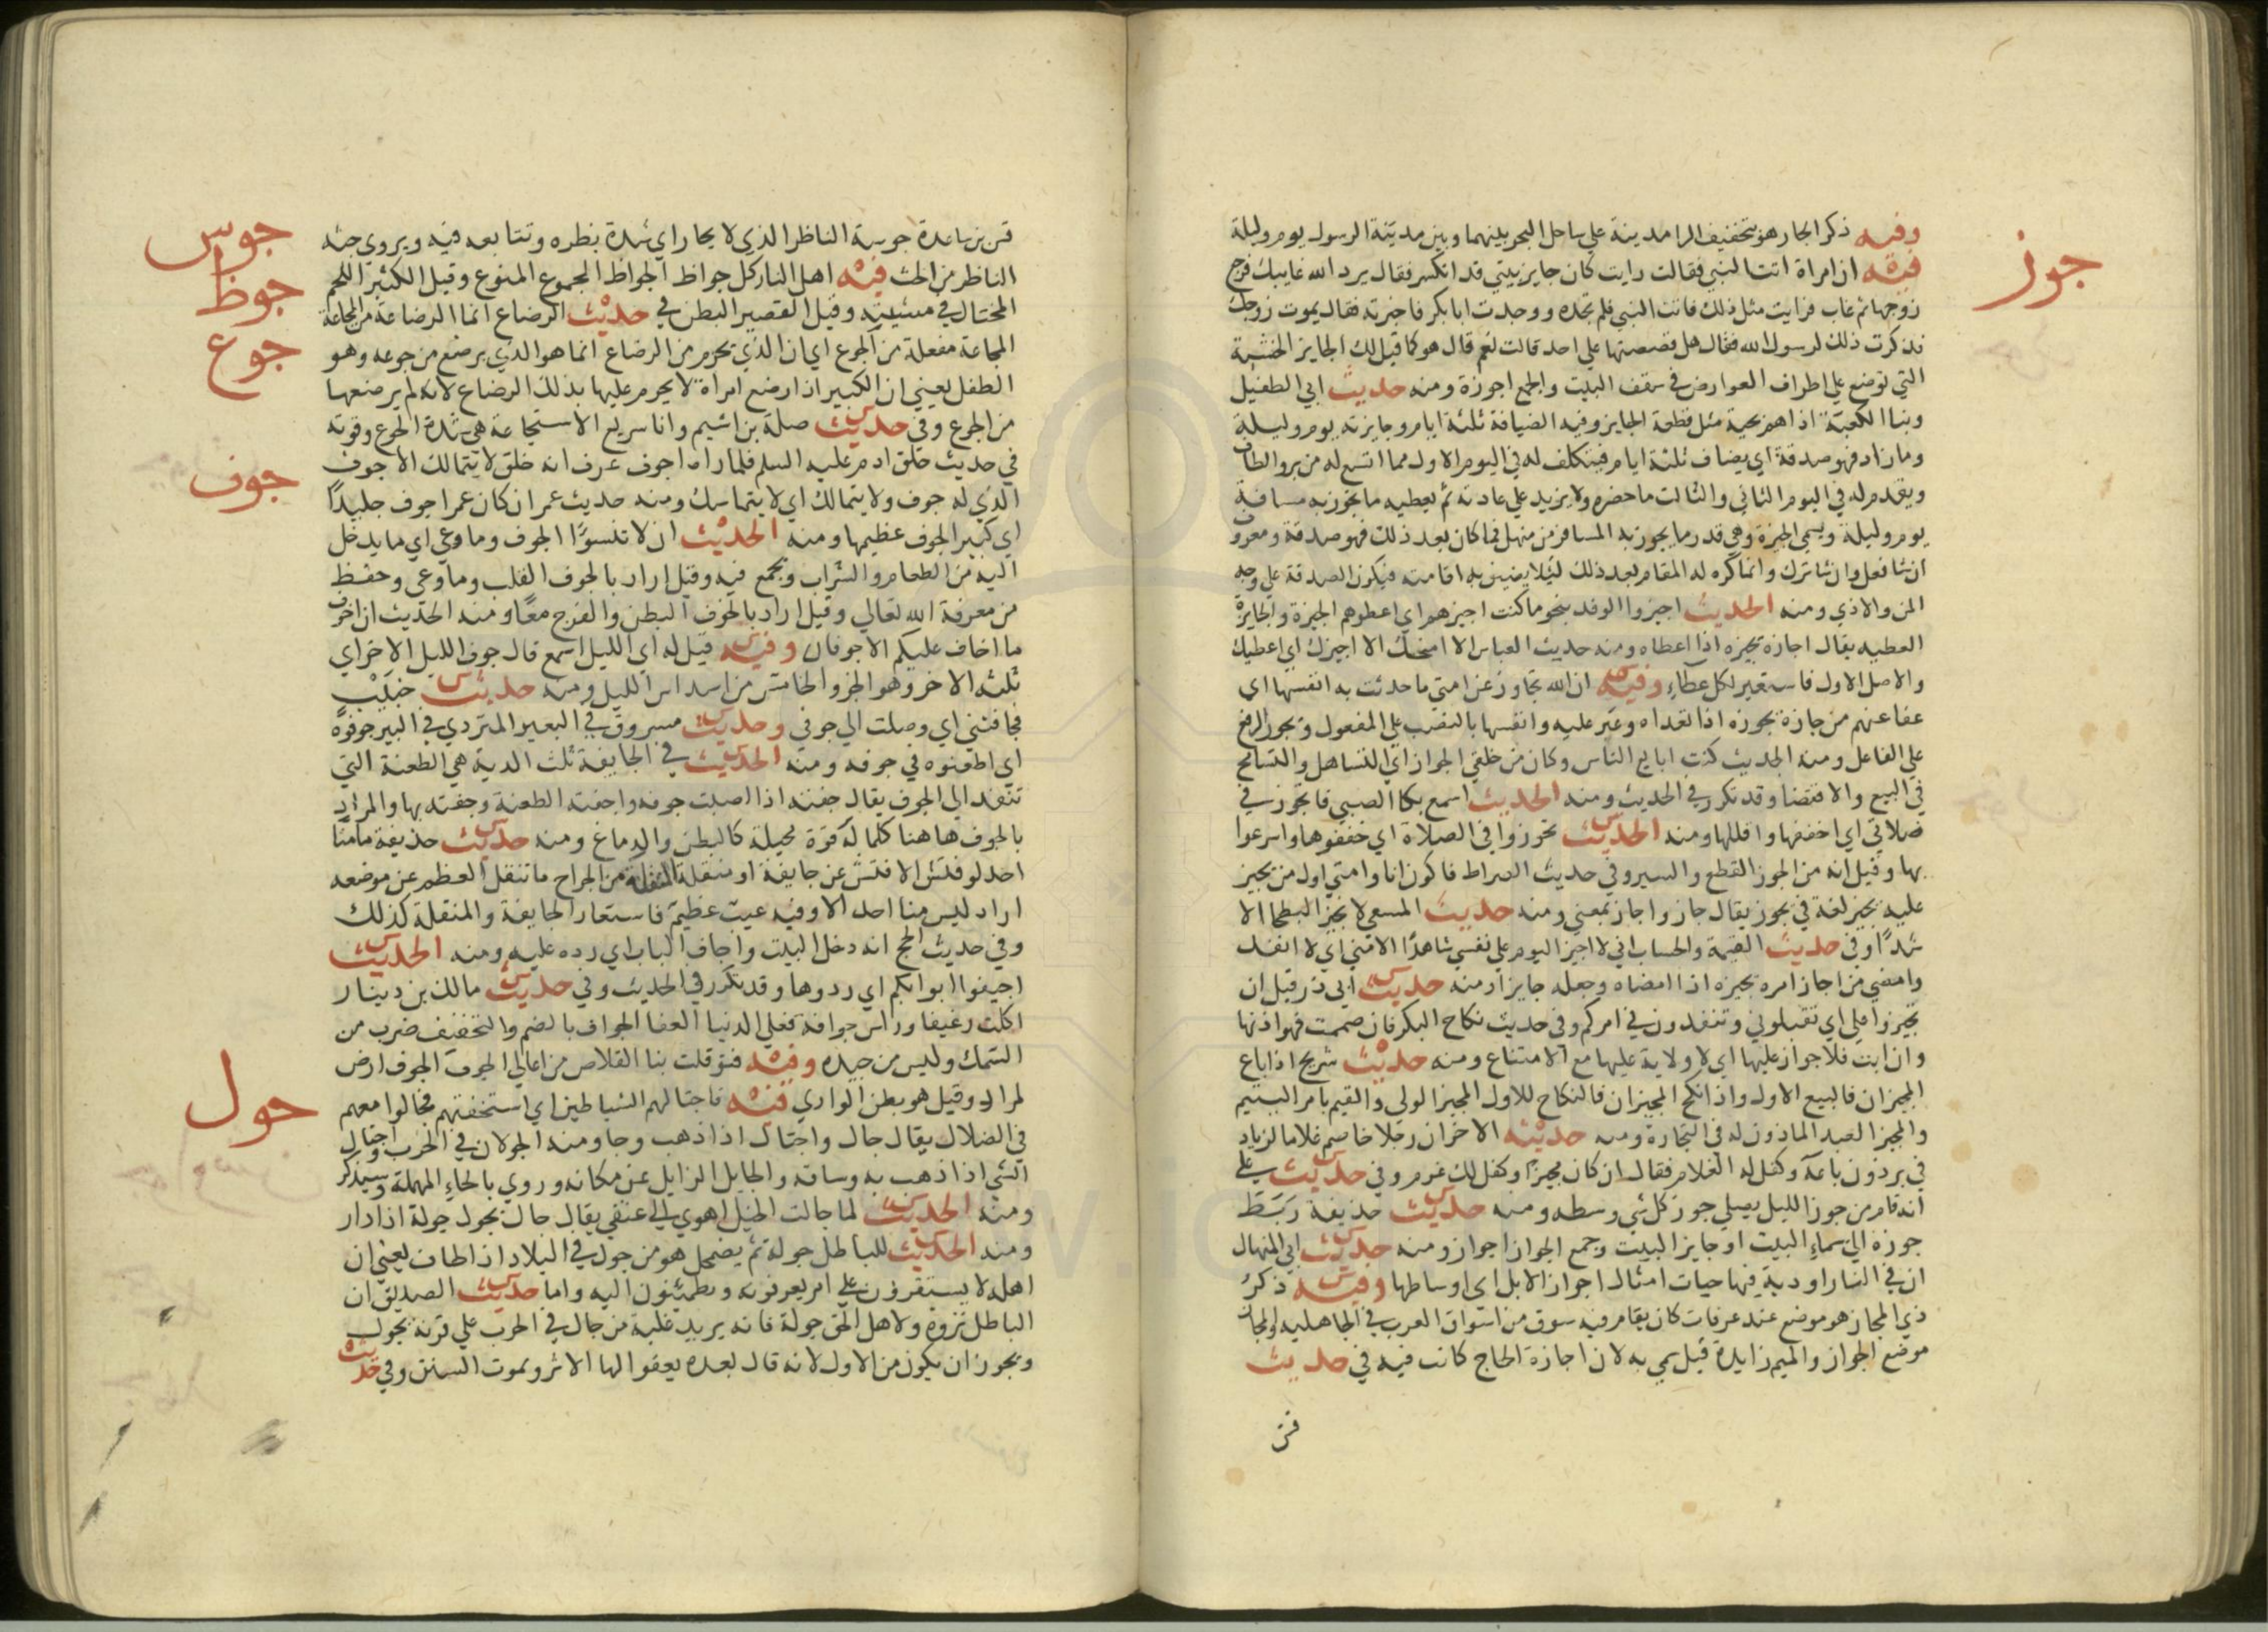 جوز
وفيه ذكر الجار هو بتخفيف الرا مدينة علي ساحل البحر بينهما وبين مدينة الرسول يوم وليلة
فيه ان امراة اتت النبي فقالت رايت كان جايز بيتي قد انكسر فقال يرد الله غايبك فرجع
زوجها ثم غاب فرايت مثل ذلك فاتت النبي فلم تجده ووجدت ابا بكر فاخبرته فقال يموت زوجك
فذكرت ذلك لرسول الله فقال هل قصصتها علي احد قالت نعم قال هو كما قيل لك الجايز الخشبة
التي توضع علي اطراف العوارض في سقف البيت والجمع اجوزة ومنه حديث ابي الطفيل
وبنا الكعبة اذا هم بحية مثل قطعة الجايز وفيه الضيافة ثلثة ايام وجايزته يوم وليلة
وما زاد فهو صدقة اي يضاف ثلثة ايام فيتكلف له في اليوم الاول مما اتسع له من بر والطاف
ويقدم له في اليوم الثاني والثالث ما حضره ولا يزيد علي عادته ثم يعطيه ما يجوز به مسافة
يوم وليلة ويسمي الجيزة وهي قدر ما يجوز به المسافر من منهل فما كان بعد ذلك فهو صدقة ومعروف
ان شا فعل وان شا ترك وانما كره له المقام بعد ذلك ليلا يضيق به اقامته فيكون الصدقة علي وجه
المن والاذي ومنه الحديث اجيزوا الوفد بنحو ما كنت اجيزهم اي اعطوهم الجيزة والجايزة
العطيه يقال اجازه يجيزه اذا اعطاه ومنه حديث العباس الا امنحك الا اجيزك اي اعطيك
والاصل الاول فاستعير لكل عطاء وفيه ان الله تجاوز عن امتي ما حدثت به انفسها اي
عفا عنهم من جازه يجوزه اذا تعداه وعبر عليه وانفسها بالنصب علي المفعول ويجوز الرفع
علي الفاعل ومنه الحديث كنت ابايع الناس وكان من خلقي الجواز اي التساهل والتسامح
في البيع والاقتضا وقد تكرر في الحديث ومنه الحديث اسمع بكا الصبي فاتجوز في
صلاتي اي اخففها واقللها ومنه الحديث تجوزوا في الصلاة اي خففوها واسرعوا
بها وقيل انه من الجوز القطع والسير وفي حديث الصراط فاكون انا وامتي اول من يجيز
عليه يجيز لغة في يجوز يقال جاز واجاز بمعني ومنه حديث المسعي لا تجيز البطحا الا
شدا وفي حديث القيمة والحساب اني لا اجيز اليوم علي نفسي شاهدا الا مني اي لا انفذ
وامضي من اجاز امره يجيزه اذا امضاه وجعله جايزا ومنه حديث ابي ذر قيل ان
تجيزوا علي اي تقبلوني وتنفذون في امركم وفي حديث نكاح البكر فان صمتت فهو اذنها
وان ابت فلا جواز عليها اي لا ولاية عليها مع الامتناع ومنه حديث شريح اذا باع
المجيزان فالبيع الاول واذا نكح المجيزان فالنكاح للاول المجيز الولي والقيم بامر اليتيم
والمجيز العبد الماذون له في التجارة ومنه حديثه الاخر ان رجلا خاصم غلاما لزياد
في برذون باعه وكفل له الغلام فقال ان كان مجيزا وكفل لك غرم وفي حديث علي
انه قام من جوز الليل يصلي جوز كل شي وسطه ومنه حديث حذيفة ربط
جوزه الي سماء البيت او جايز البيت وجمع الجواز اجواز ومنه حديث ابي المنهال
ان في النار اودية فيها حيات امثال اجواز الابل اي اوساطها وفيه ذكر
ذي المجاز هو موضع عند عرفات كان يقام فيه سوق من اسواق العرب في الجاهليه والمجاز
موضع الجواز والميم زايدة قيل سمي به لان اجازة الحاج كانت فيه في حديث
قس
جوس
جوظ
جوع
جوف
جول
قس بن ساعدة جوسة الناظر الذي لا يحار اي شدة نظره وتتابعه فيه ويروي حثة
الناظر من الحث فيه اهل النار كل جواظ الجواظ الجموع المنوع وقيل الكثير اللحم
المختال في مشيته وقيل القصير البطن في حديث الرضاع انما الرضاعة من المجاعة
المجاعة مفعلة من الجوع اي ان الذي يحرم من الرضاع انما هو الذي يرضع من جوعه وهو
الطفل يعني ان الكبير اذا رضع امراة لا يحرم عليها بذلك الرضاع لانه لم يرضعها
من الجوع وفي حديث صلة بن اشيم وانا سريع الاستجاعة هي شدة الجوع وقوته
في حديث خلق ادم عليه السلم فلما راه اجوف عرف انه خلق لا يتمالك الاجوف
الذي له جوف ولا يتمالك اي لا يتماسك ومنه حديث عمران كان عمر اجوف جليدا
اي كبير الجوف عظيمها ومنه الحديث ان لا تنسوا الجوف وما وعي اي ما يدخل
اليه من الطعام والشراب ويجمع فيه وقيل اراد بالجوف القلب وما وعي وحفظ
من معرفة الله تعالي وقيل اراد بالجوف البطن والفرج معا ومنه الحديث ان اخوف
ما اخاف عليكم الاجوفان وفيه قيل له اي الليل اسمع قال جوف الليل الاخر اي
ثلثه الاخر وهو الجزو الخامس من اسداس الليل ومنه حديث خبيب
فجافتني اي وصلت الي جوفي وحديث مسروق في البعير المتردي في البير جوفوه
اي اطعنوه في جوفه ومنه الحديث في الجايفة ثلث الدية هي الطعنة التي
تنفذ الي الجوف يقال جفته اذا اصبت جوفه واجفته الطعنة وجفته بها والمراد
بالجوف هاهنا كلما له قوة محيلة كالبطن والدماغ ومنه حديث حذيفة ما منا
احد لو فتش الا فتش عن جايفة او منقلة المنقلة من الجراح ما تنقل العظم عن موضعه
اراد ليس منا احد الا وفيه عيب عظيم فاستعار الجايفة والمنقلة كذلك
وفي حديث الحج انه دخل البيت واجاف الباب اي رده عليه ومنه الحديث
اجيفوا ابوابكم اي ردوها وقد تكرر في الحديث وفي حديث مالك بن دينار
اكلت رغيفا وراس جوافة فعلي الدنيا العفا الجواف بالضم والتخفيف ضرب من
السمك وليس من جيده وفيه فتوقلت بنا القلاص من اعالي الجوف الجوف ارض
لمراد وقيل هو بطن الوادي فيه فاجتالهم الشياطين اي استخفتهم فجالوا معهم
في الضلال يقال جال واجتال اذا ذهب وجا ومنه الجولان في الحرب واجتال
الشي اذا ذهب به وساقه والجايل الزايل عن مكانه وروي بالحاء المهملة وسيذكر
ومنه الحديث لما جالت الخيل اهوي الي عنقي يقال جال يجول جولة اذا دار
ومنه الحديث للباطل جولة ثم يضمحل هو من جول في البلاد اذا طاف يعني ان
اهله لا يستقرون علي امر يعرفونه ويطمئنون اليه واما حديث الصديق ان
الباطل نزوة ولاهل الحق جولة فانه يريد غلبة من جال في الحرب علي قرنه يجول
ويجوز ان يكون من الاول لانه قال بعده يعفوا لها الاثر وتموت السنن وفي حديث